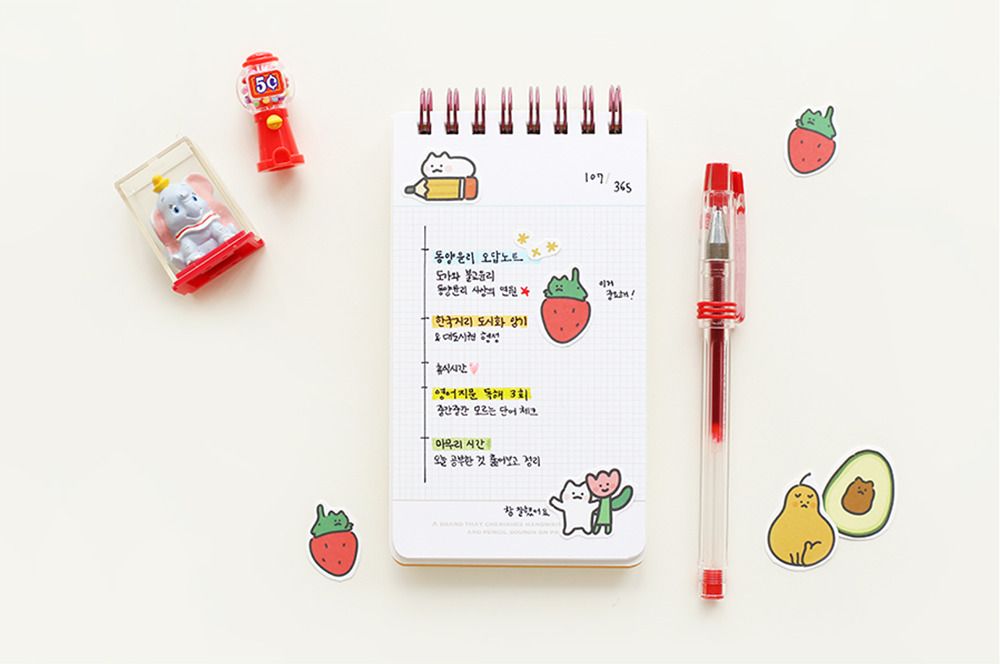 5¢
107/
365
동양윤리 오답노트
도가와 불교윤리
동양윤리 사상의 연원
이거
중요해!
한국지리 도시화 암기
& 대도시권 형성
휴식시간
영어지문 독해 3회
중간중간 모르는 단어 체크
마무리 시간
오늘 공부한 것 훑어보고 정리
참 잘했어요
A BRAND THAT CHERISHES HANDWRIT
AND PENCIL SOUNDS ON PA